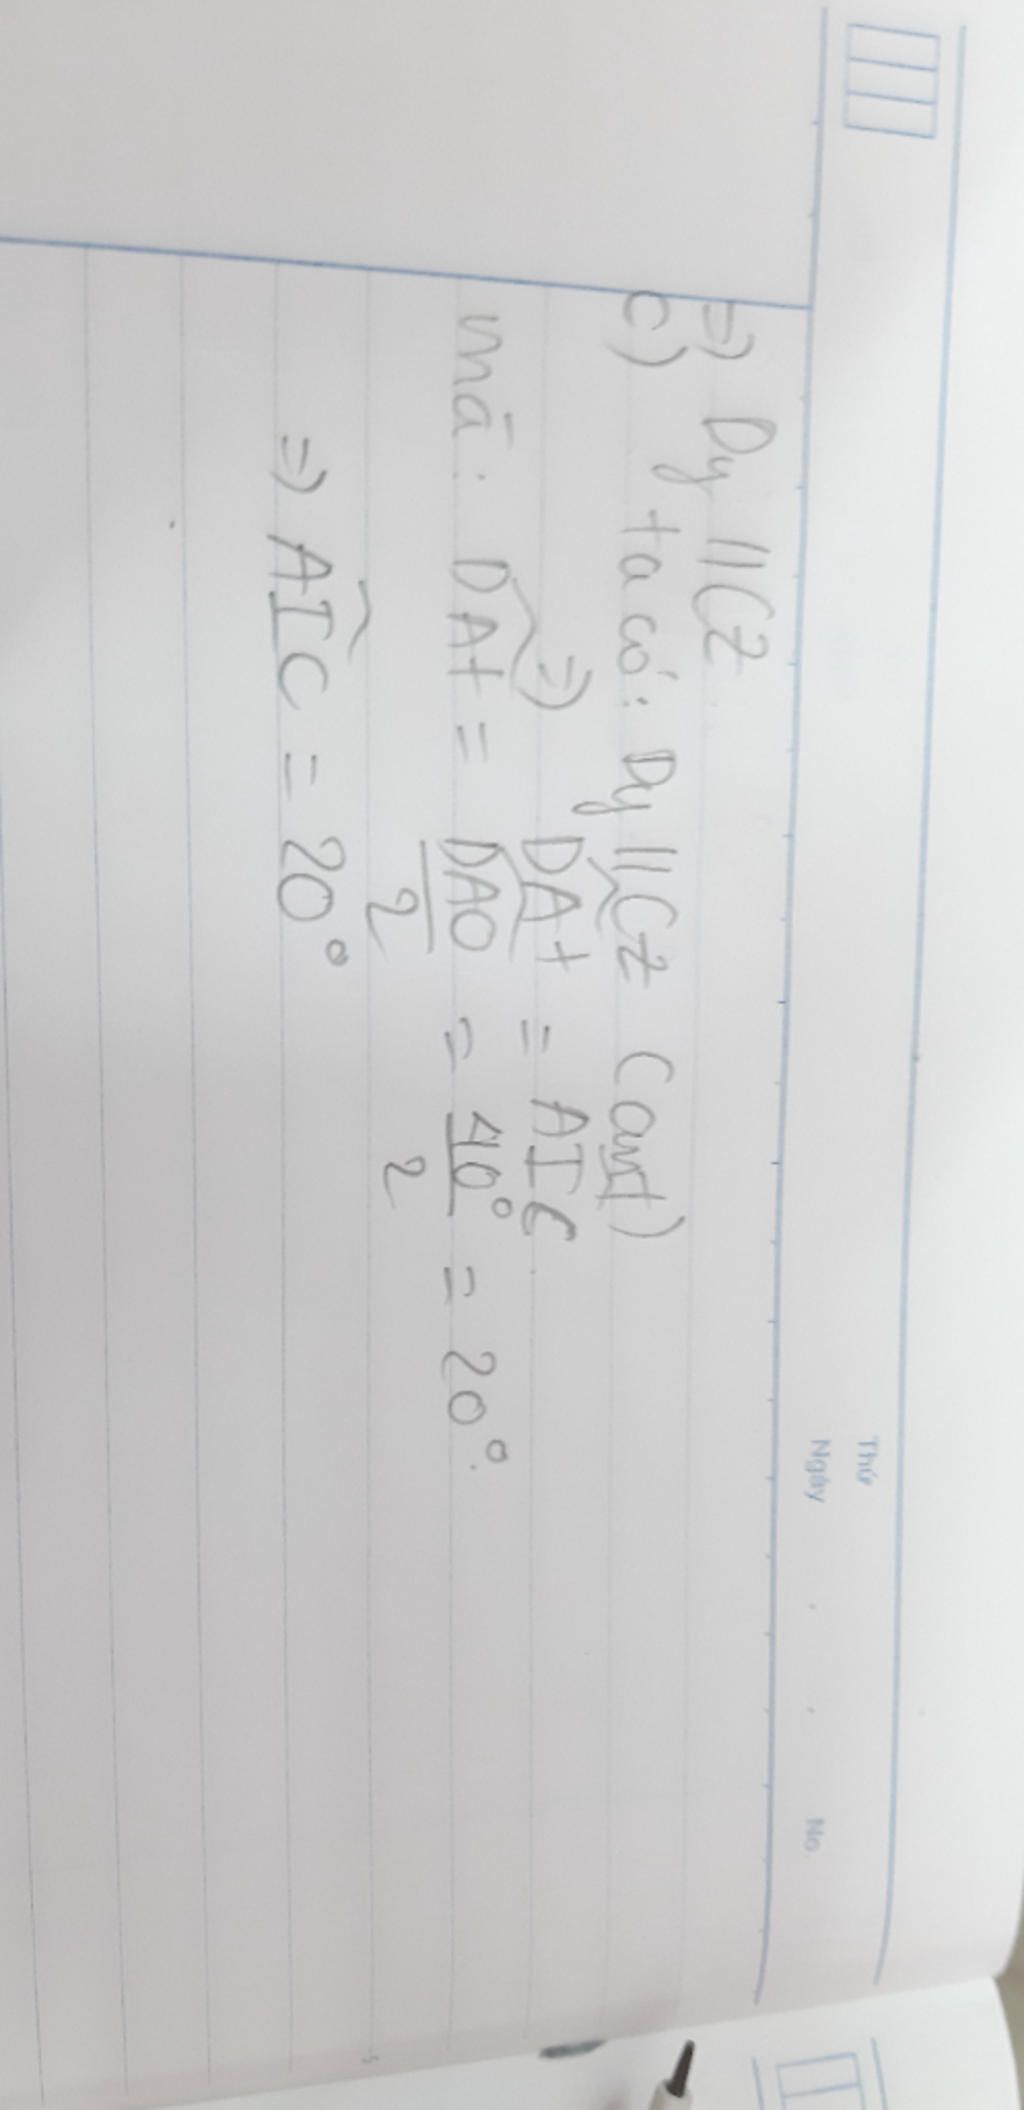 Thứ
Ngày . . No.
=> Dy // Cz
c) ta có: Dy // Cz (cmt)
=> DAt = AIC
mà: DAt = DAO/2 = 40°/2 = 20°.
=> AIC = 20°